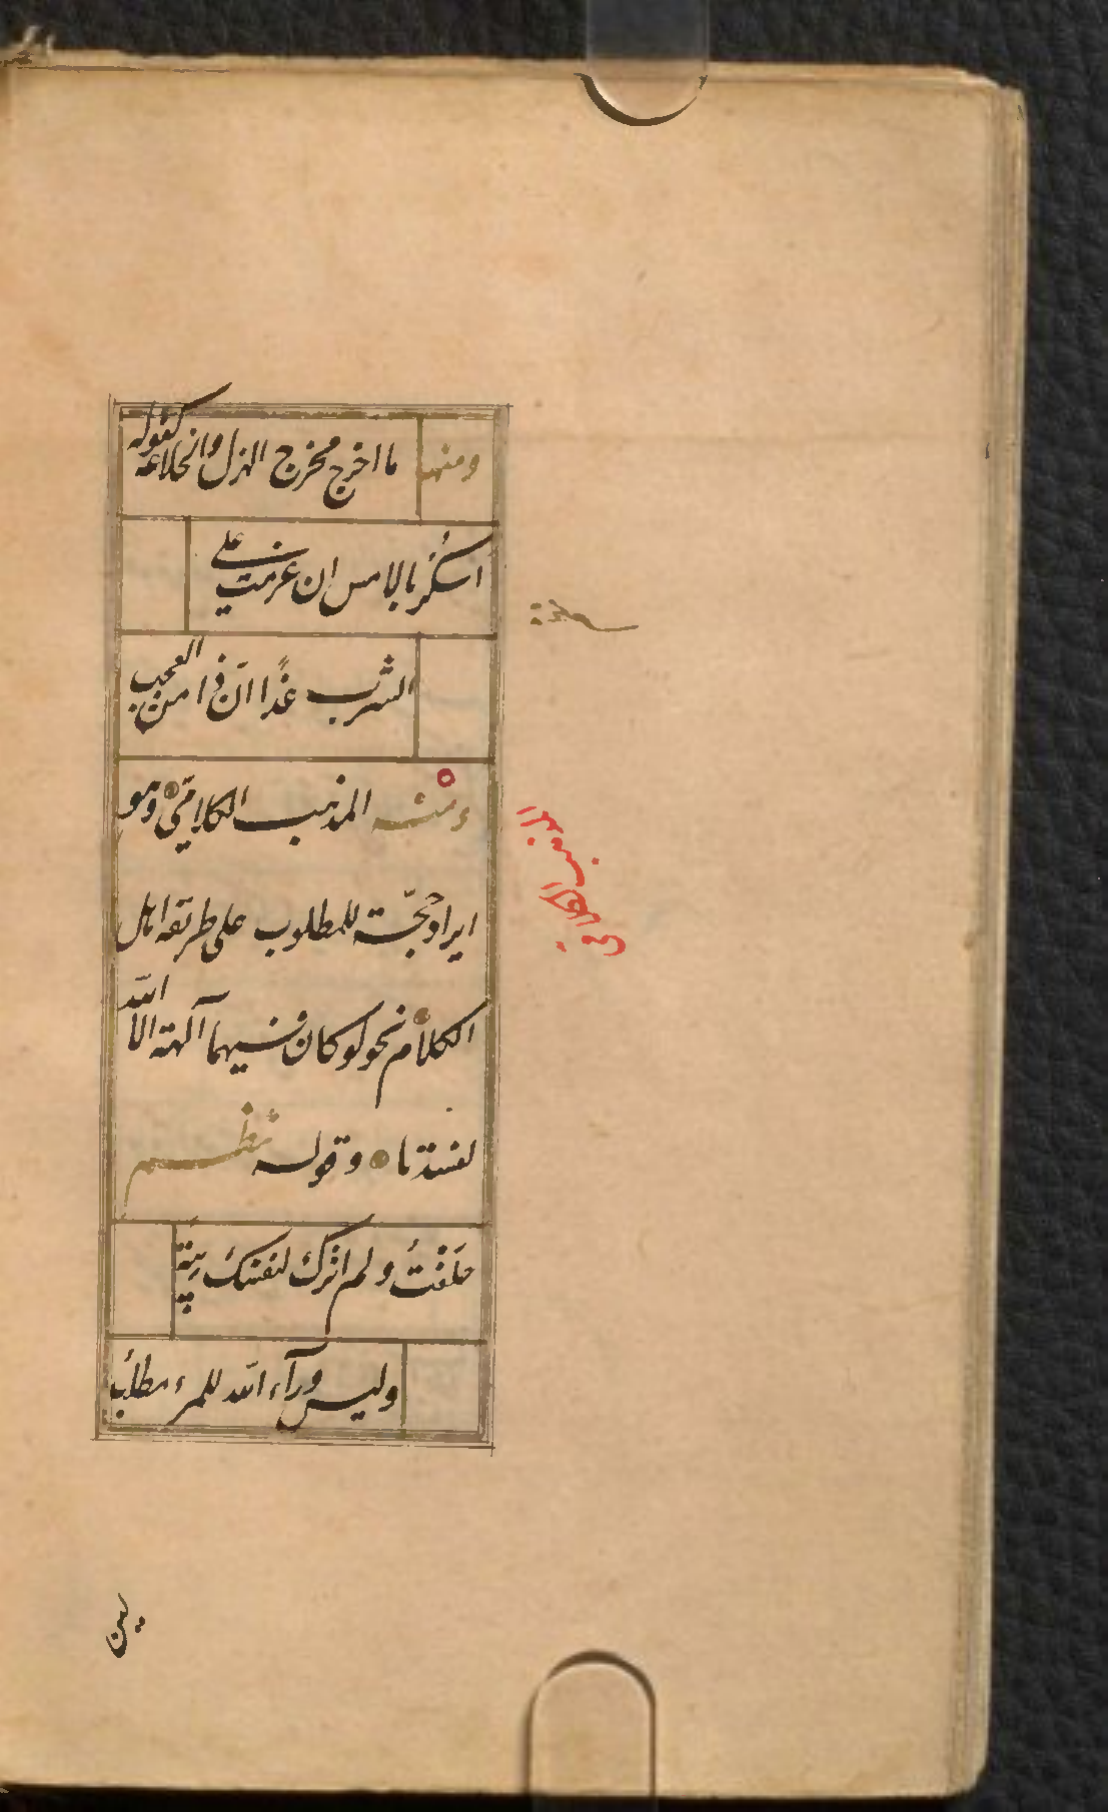 ومنها ما اخرج مخرج الهزل والخلاعة كقوله
اَسْكَرُ بالامس ان عزمت على
الشرب غدًا انّ ذا من العجب
ومنه المذهب الكلامي وهو
ايراد حجّة للمطلوب على طريقة اهل
الكلام نحو لو كان فيهما آلهة الا الله
لفسدتا وقوله نظم
حَلَفْتُ ولم اترك لنفسك رِيبَةً
وليس ورآء الله للمرء مطلبُ